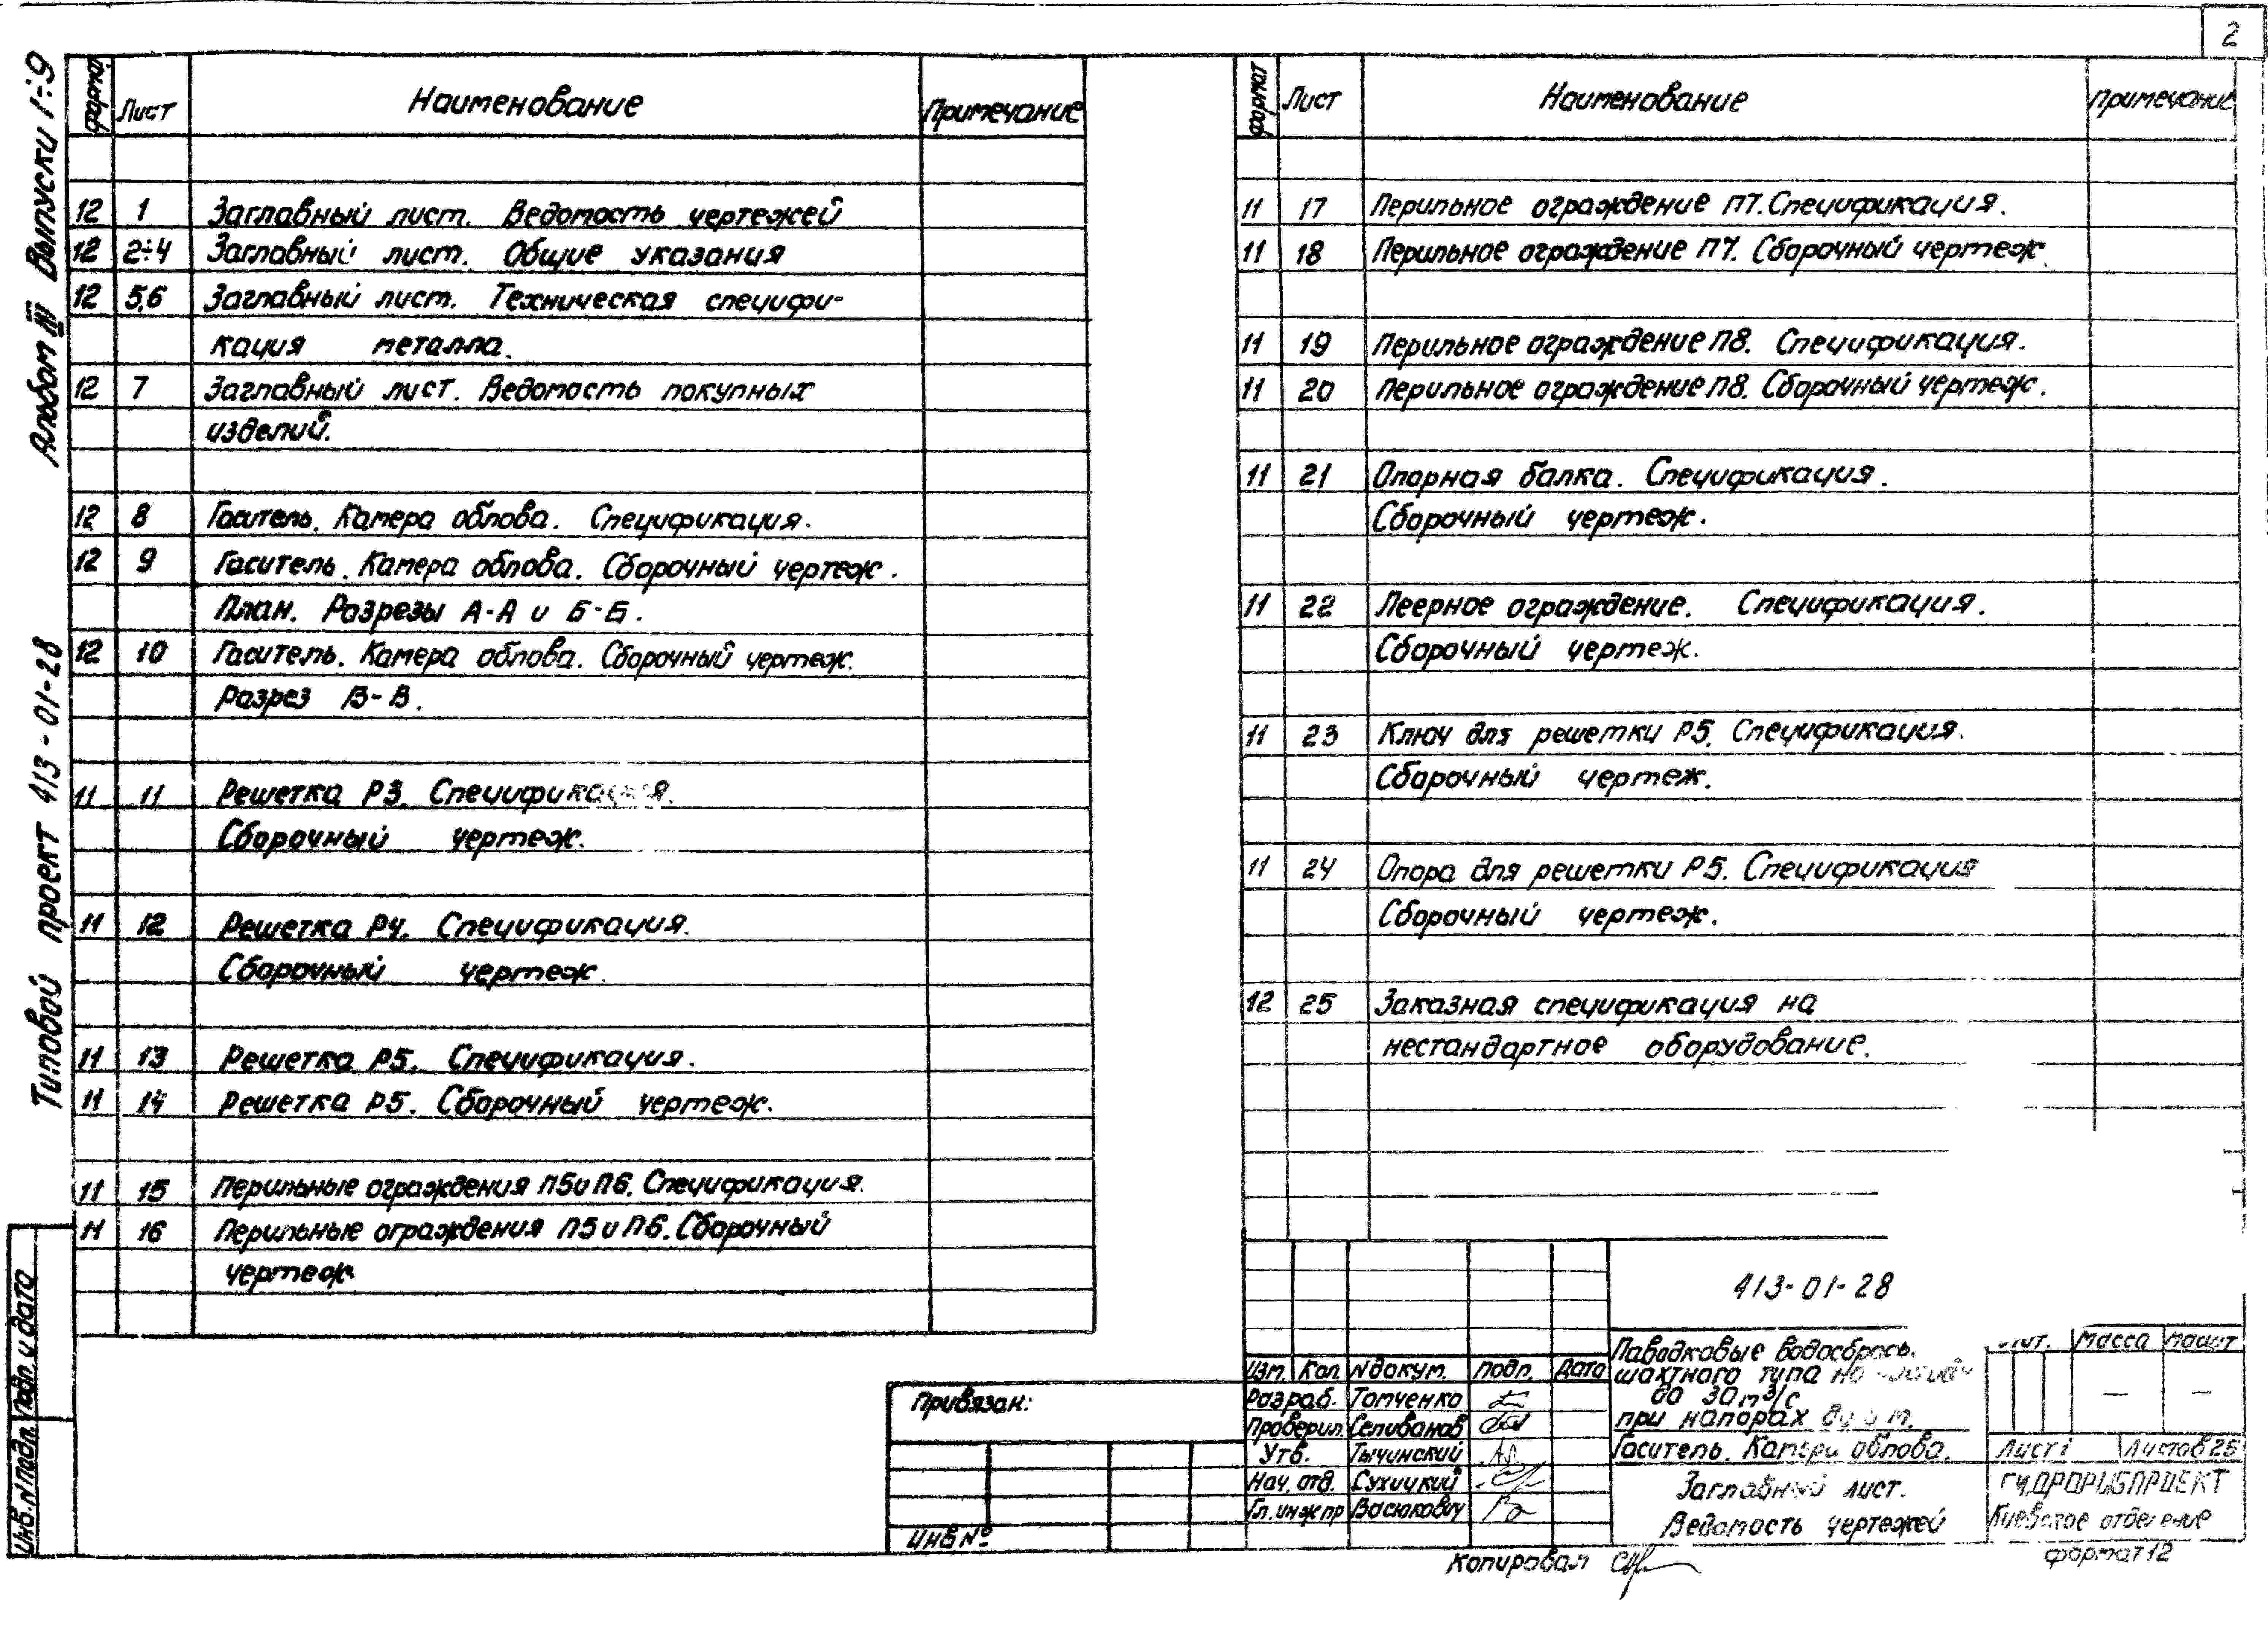 2
Альбом III Выпуски 1÷9
Типовой проект 413-01-28
формат Лист Наименование Примечание
12 1 Заглавный лист. Ведомость чертежей
12 2÷4 Заглавный лист. Общие указания
12 5,6 Заглавный лист. Техническая специфи-
кация металла.
12 7 Заглавный лист. Ведомость покупных
изделий.
12 8 Гаситель. Камера облова. Спецификация.
12 9 Гаситель. Камера облова. Сборочный чертеж.
План. Разрезы А-А и Б-Б.
12 10 Гаситель. Камера облова. Сборочный чертеж.
Разрез В-В.
11 11 Решетка Р3. Спецификация.
Сборочный чертеж.
11 12 Решетка Р4. Спецификация.
Сборочный чертеж.
11 13 Решетка Р5. Спецификация.
11 14 Решетка Р5. Сборочный чертеж.
11 15 Перильные ограждения П5 и П6. Спецификация.
11 16 Перильные ограждения П5 и П6. Сборочный
чертеж
формат Лист Наименование Примечание
11 17 Перильное ограждение П7. Спецификация.
11 18 Перильное ограждение П7. Сборочный чертеж.
11 19 Перильное ограждение П8. Спецификация.
11 20 Перильное ограждение П8. Сборочный чертеж.
11 21 Опорная балка. Спецификация.
Сборочный чертеж.
11 22 Леерное ограждение. Спецификация.
Сборочный чертеж.
11 23 Ключ для решетки Р5. Спецификация.
Сборочный чертеж.
11 24 Опора для решетки Р5. Спецификация
Сборочный чертеж.
12 25 Заказная спецификация на
нестандартное оборудование.
Инв.N подл. Подп. и дата
Привязан:
Инв №
413-01-28
Изм. Кол. N докум. Подп. Дата
Разраб. Топченко
Проверил. Селиванов
Утв. Тычинский
Нач. отд. Сухицкий
Гл. инж пр Васюкович
Паводковые водосбросы
шахтного типа на
до 30 м³/с
при напорах до м.
Гаситель. Камера облова.
Заглавный лист.
Ведомость чертежей
Лит. Масса Масшт
— —
Лист 1 Листов 25
ГИДРОРЫБПРОЕКТ
Киевское отделение
Копировал
формат 12